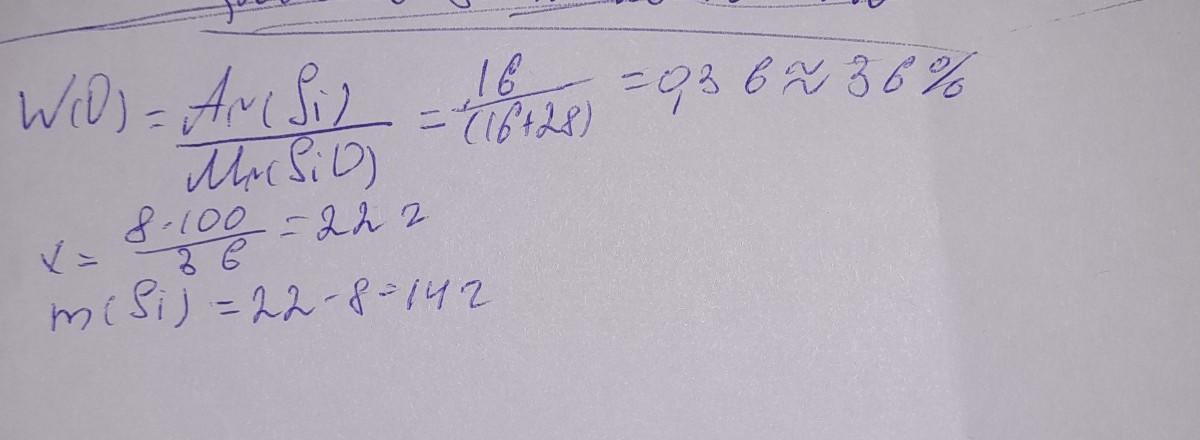 W(O) = Ar(Si) / Mr(SiO) = 16 / (16+28) = 0,36 ≈ 36%
x = 8·100 / 36 = 22 г
m(Si) = 22 - 8 = 14 г